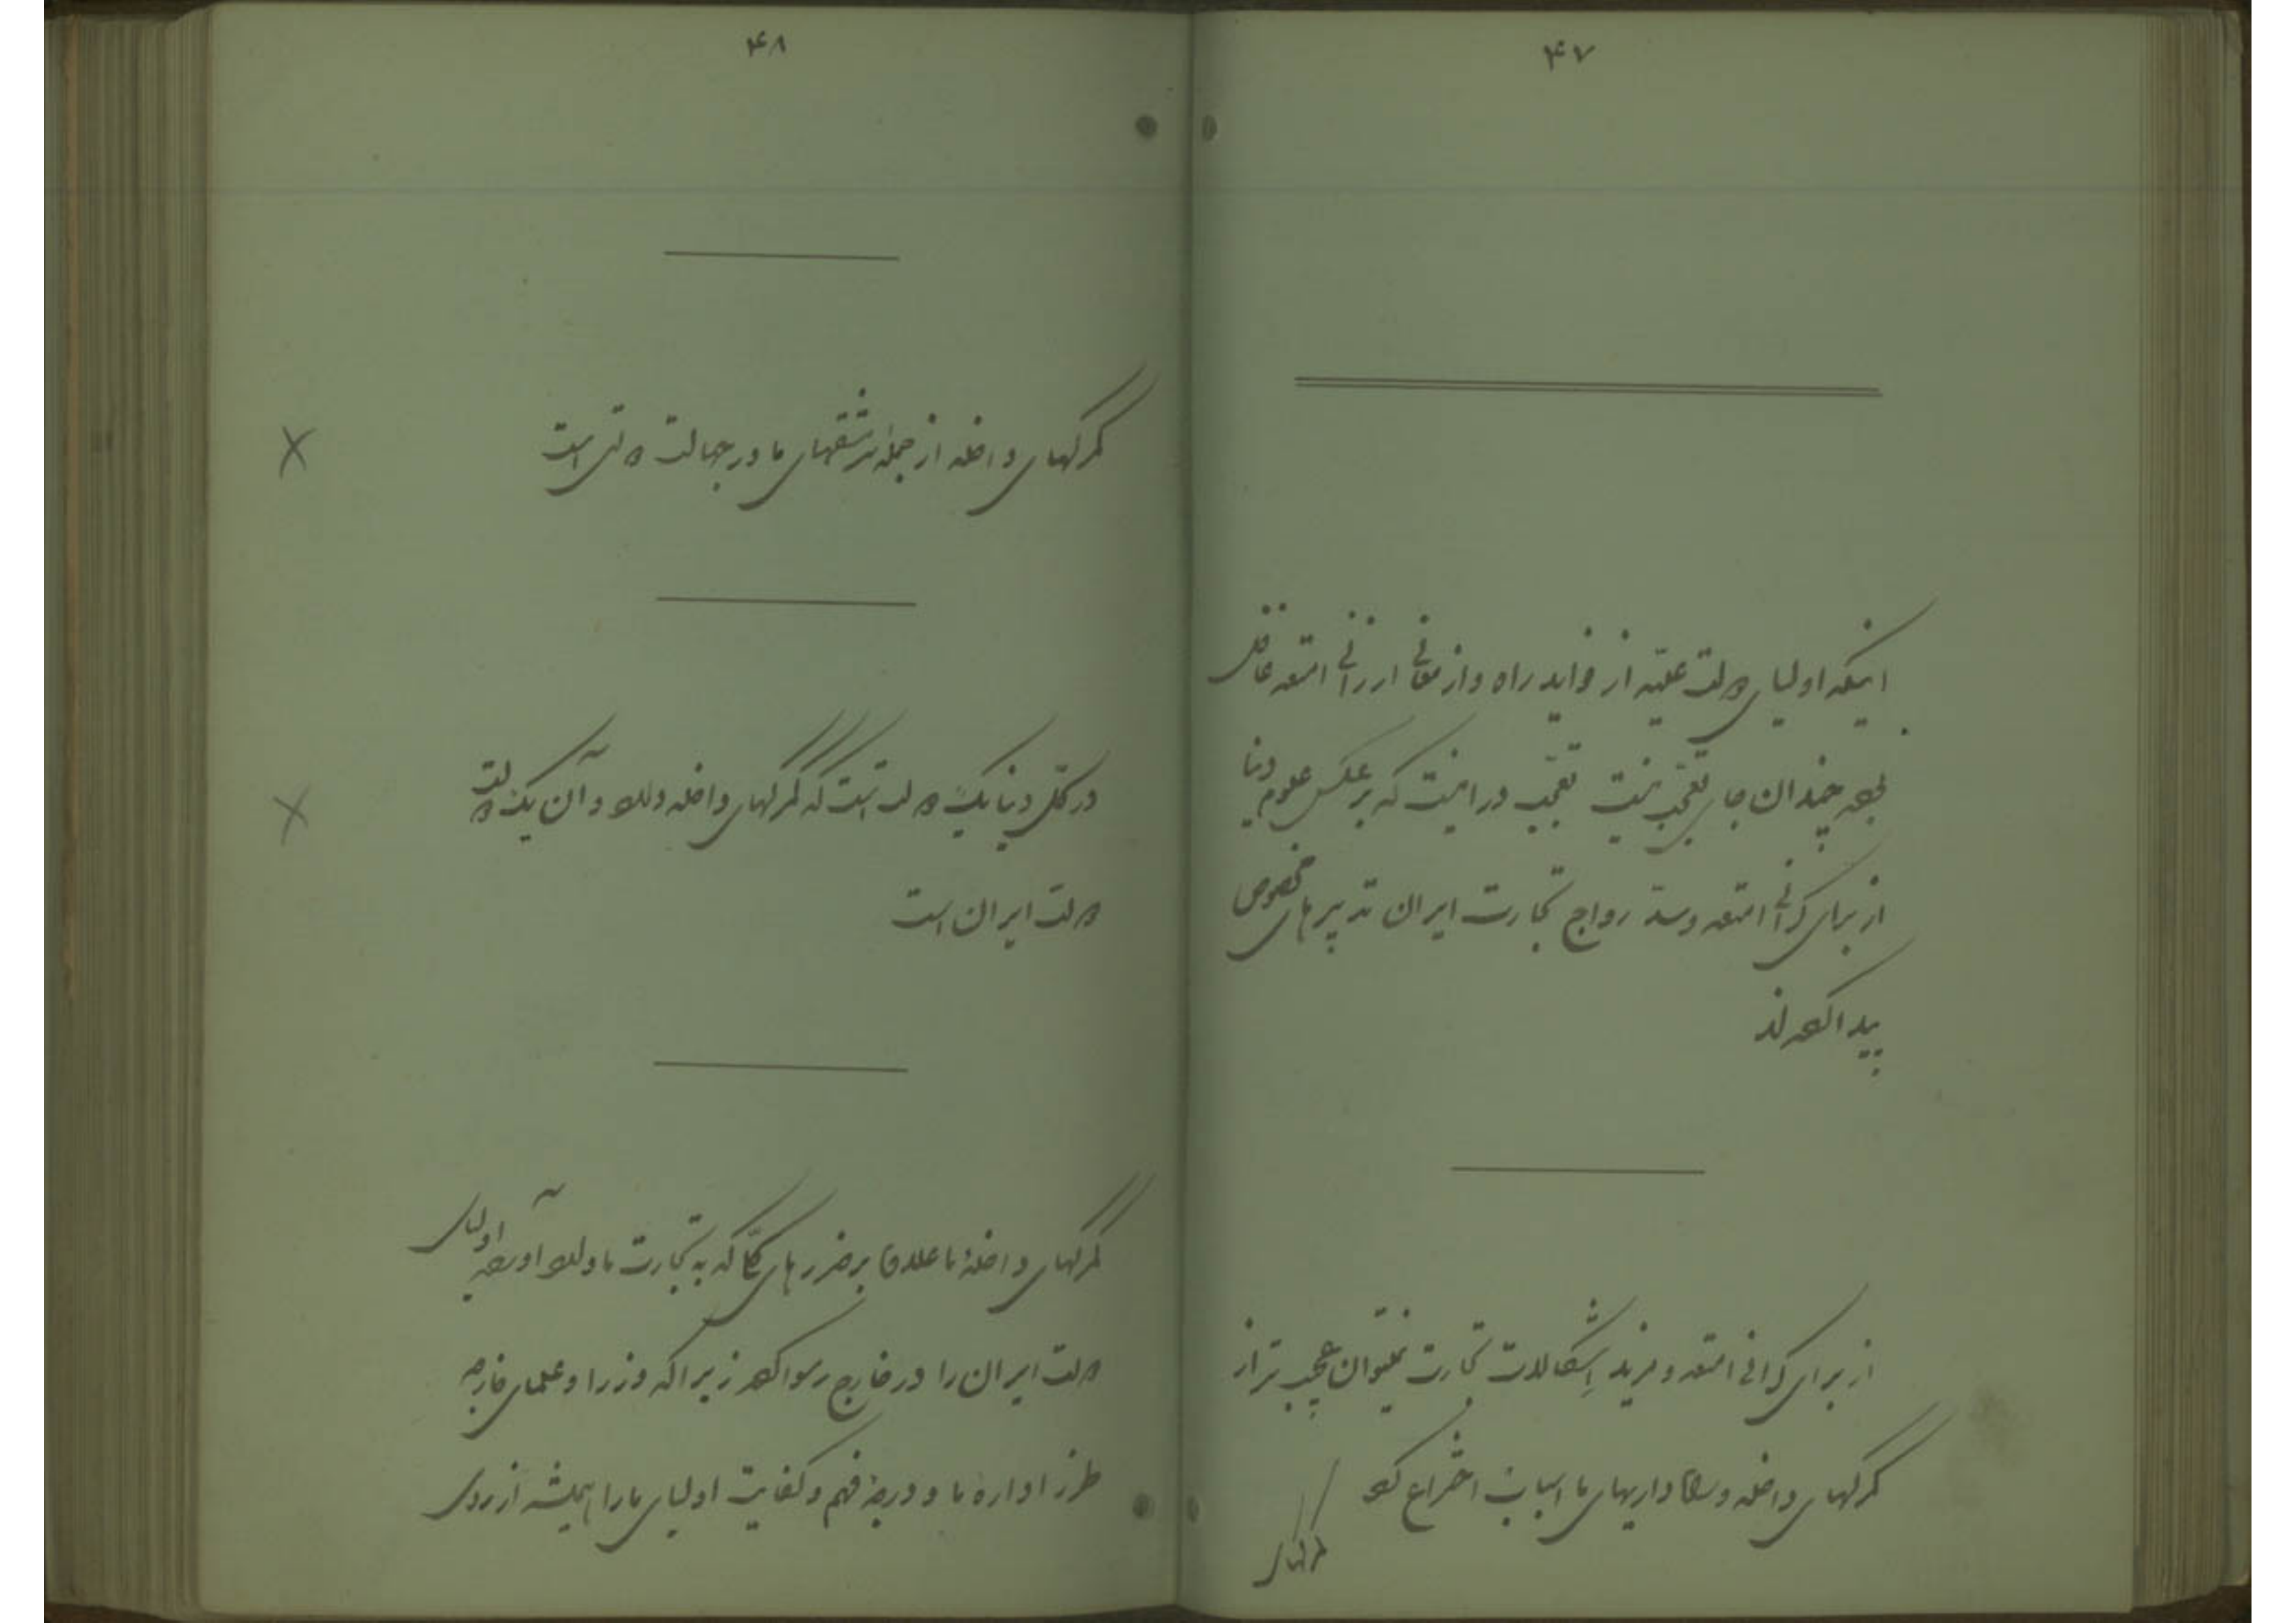 ۴۷
اینکه اولیای دولت علیه از فواید راه و از معانی ارزانی امتعه غافل
بوده چندان جای تعجّب نیست تعجّب در اینست که بر عکس علوم دنیا
از برای گرانی امتعه و سدّ رواج تجارت ایران تدبیرهای مخصوص
پیدا کرده‌اند
از برای گرانی امتعه و مزید اشکالات تجارت نمیتوان عجیب‌تر از
گمرکهای داخله و راهداریهای ما اسبابی اختراع کرد
گمرکهای
۴۸
گمرکهای داخله از جمله سرمشقهای ما در جهالت دولتی است
در کلّ دنیا یک دولت است که گمرکهای داخله دارد و آن یک دولت
دولت ایران است
گمرکهای داخلهٔ ما علاوه بر ضررهای کلّی که به تجارت ما وارد آورده اولیای
دولت ایران را در خارج رسوا کرده زیرا که وزرا و علمای خارجه
طرز ادارهٔ ما و درجهٔ فهم و کفایت اولیای ما را همیشه از روی